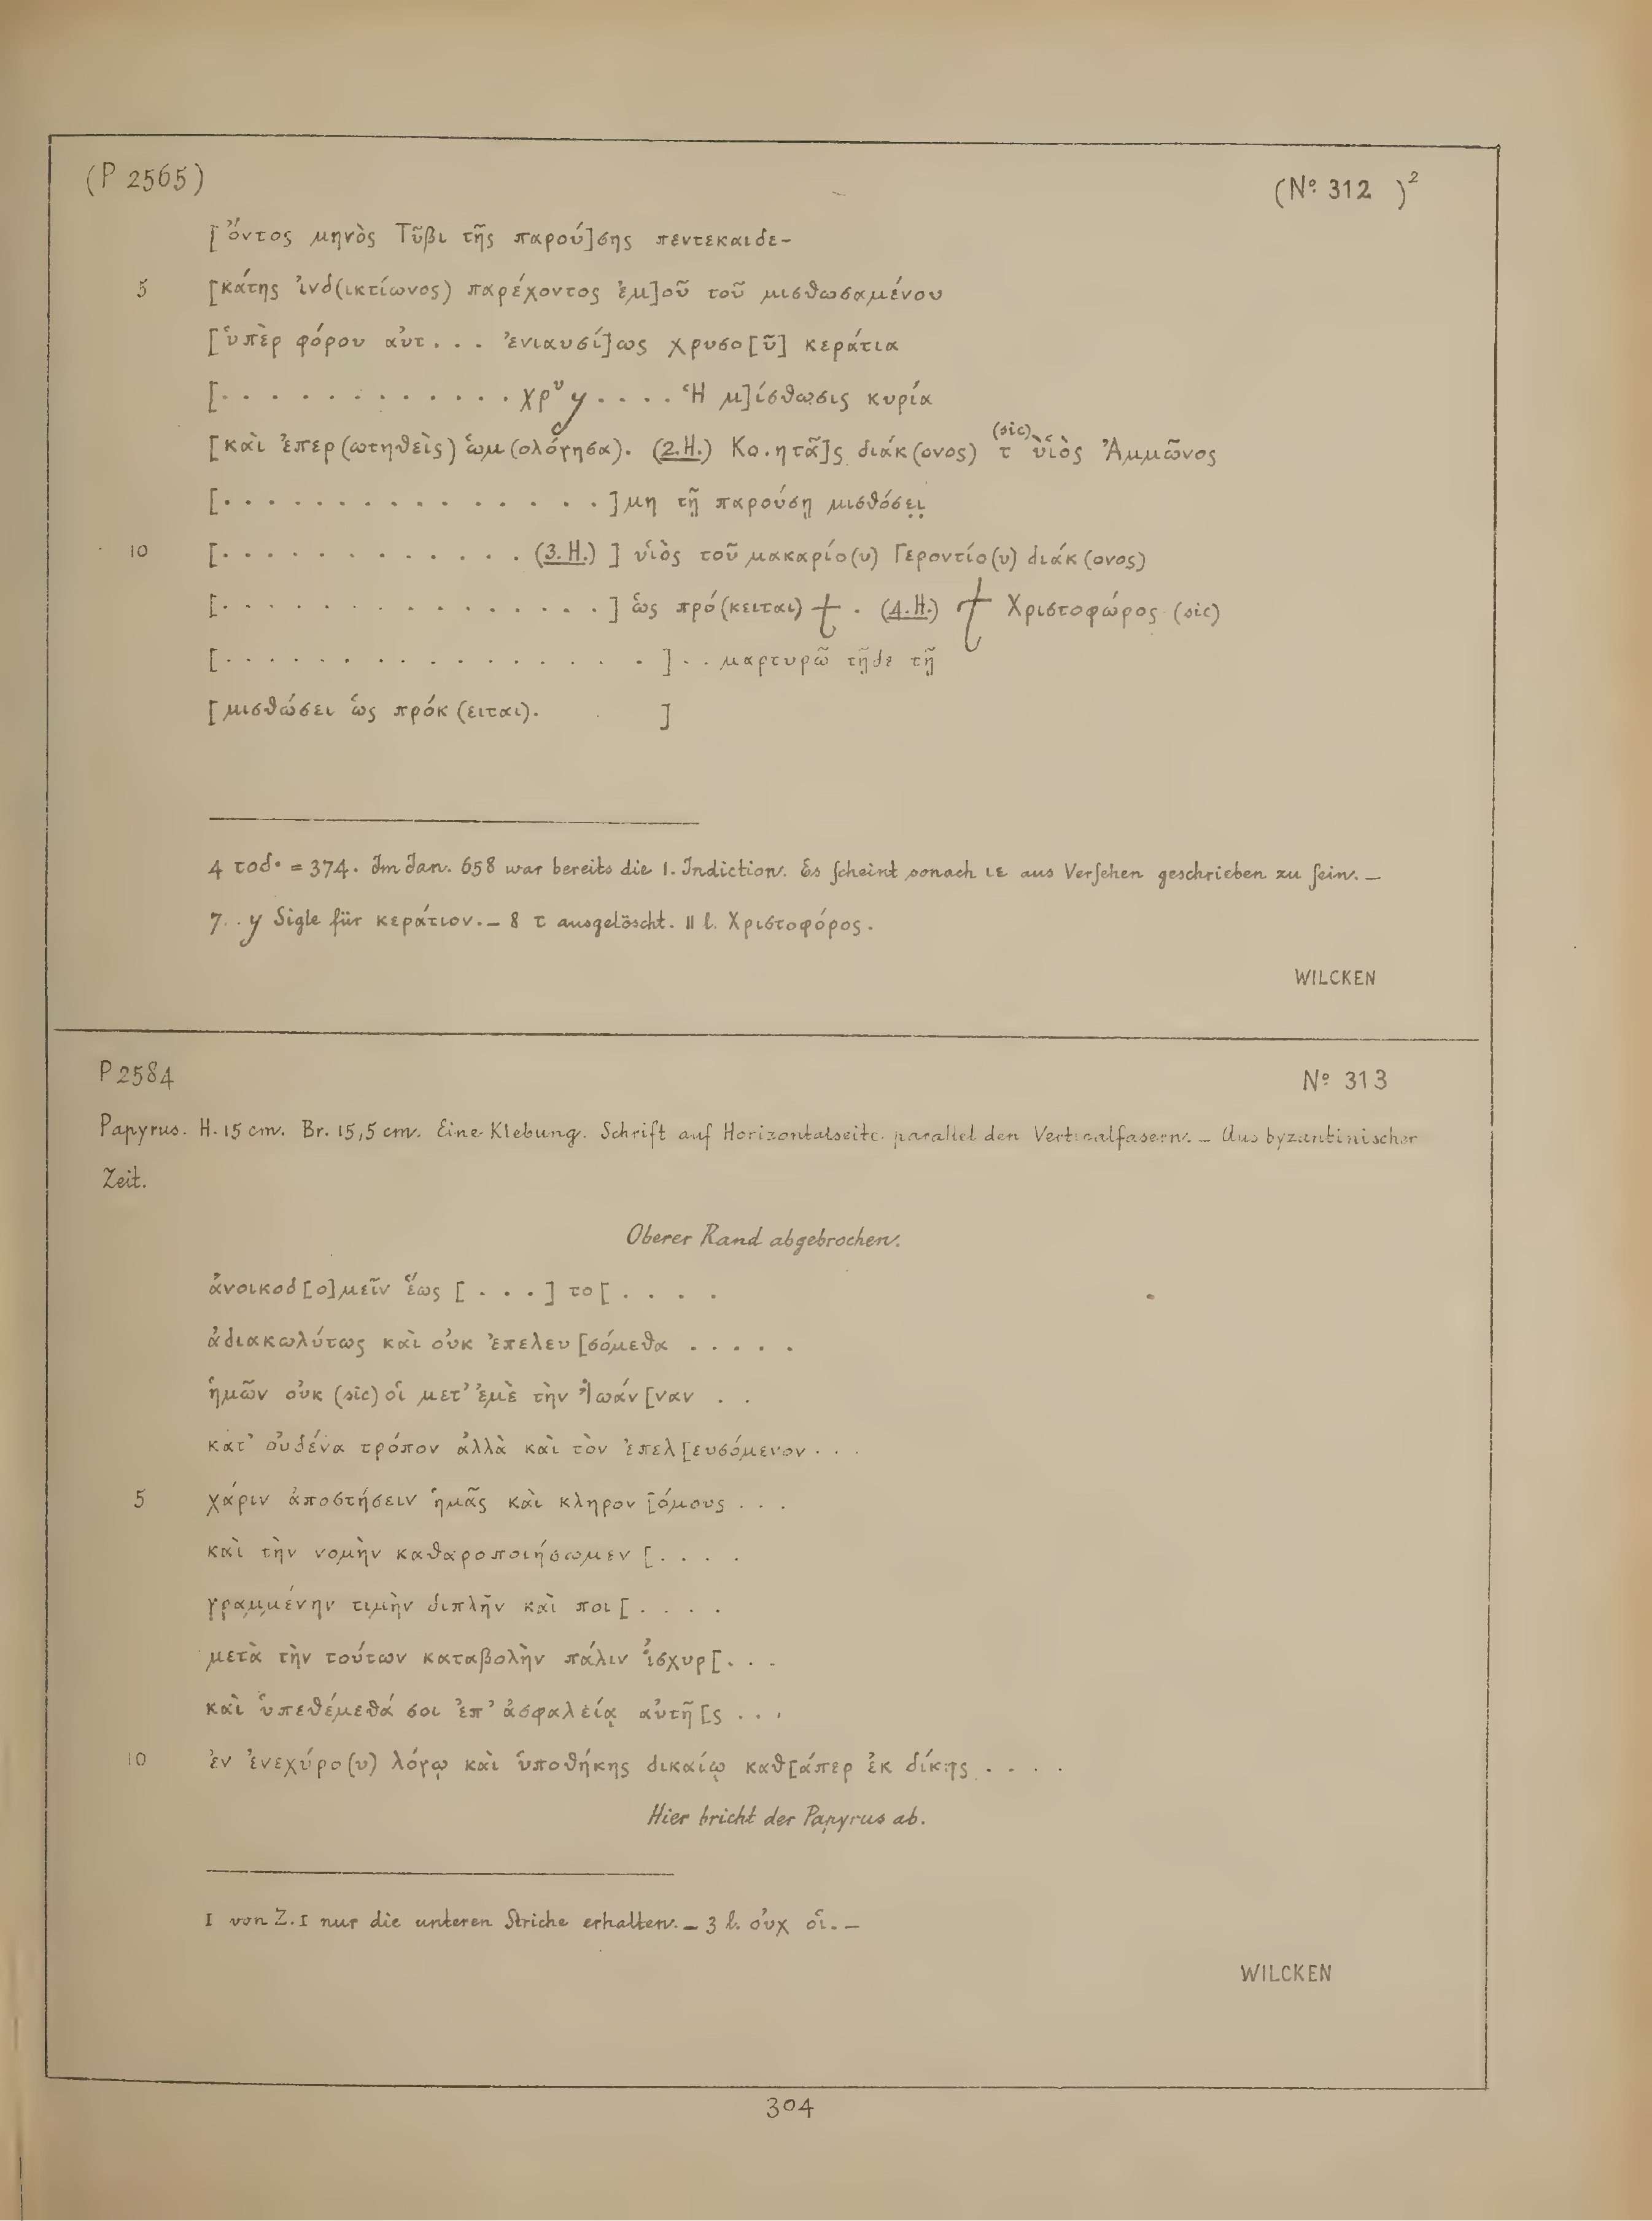 (P 2565)
(Nº 312 )²
[ὄντος μηνὸς Τῦβι τῆς παρού]σης πεντεκαιδε-
5 [κάτης ἰνδ(ικτίωνος) παρέχοντος ἐμ]οῦ τοῦ μισθωσαμένου
[ὑπὲρ φόρου αὐτ... ἐνιαυσί]ως χρυσο[ῦ] κεράτια
[............ χρυ y .... Ἡ μ]ίσθωσις κυρία
[καὶ ἐπερ(ωτηθεὶς) ὡμ(ολόγησα). (2.H.) Κο.ητᾶ]ς διάκ(ονος) τ (sic) υἱὸς Ἀμμῶνος
[...............]μη τῇ παρούσῃ μισθόσε̣ι̣
10 [............ (3.H.) ] υἱὸς τοῦ μακαρίο(υ) Γεροντίο(υ) διάκ(ονος)
[...............] ὡς πρό(κειται) † . (4.H.) † Χριστοφώρος (sic)
[................] .. μαρτυρῶ τῇδε τῇ
[μισθώσει ὡς πρόκ(ειται). ]
4 τοδ· = 374. Im Jan. 658 war bereits die 1. Indiction. Es scheint sonach ιε aus Versehen geschrieben zu sein. —
7. y Sigle für κεράτιον. — 8 τ ausgelöscht. 11 l. Χριστοφόρος.
WILCKEN
P 2584
Nº 313
Papyrus. H. 15 cm. Br. 15,5 cm. Eine Klebung. Schrift auf Horizontalseite parallel den Verticalfasern. — Aus byzantinischer
Zeit.
Oberer Rand abgebrochen.
ἀνοικοδ[ο]μεῖν ἕως [...] το[....
ἀδιακωλύτως καὶ οὐκ ἐπελευ[σόμεθα .....
ἡμῶν οὐκ (sic) οἱ μετ' ἐμὲ τὴν Ἰωάν[ναν ..
κατ' οὐδένα τρόπον ἀλλὰ καὶ τὸν ἐπελ[ευσόμενον ...
5 χάριν ἀποστήσειν ἡμᾶς καὶ κληρον[όμους ...
καὶ τὴν νομὴν καθαροποιήσωμεν [....
γραμμένην τιμὴν διπλῆν καὶ ποι[....
μετὰ τὴν τούτων καταβολὴν πάλιν ἰσχυρ[...
καὶ ὑπεθέμεθά σοι ἐπ' ἀσφαλείᾳ αὐτῆ[ς ...
10 ἐν ἐνεχύρο(υ) λόγῳ καὶ ὑποθήκης δικαίῳ καθ[άπερ ἐκ δίκης ....
Hier bricht der Papyrus ab.
1 von Z. 1 nur die unteren Striche erhalten. — 3 l. οὐχ οἱ. —
WILCKEN
304